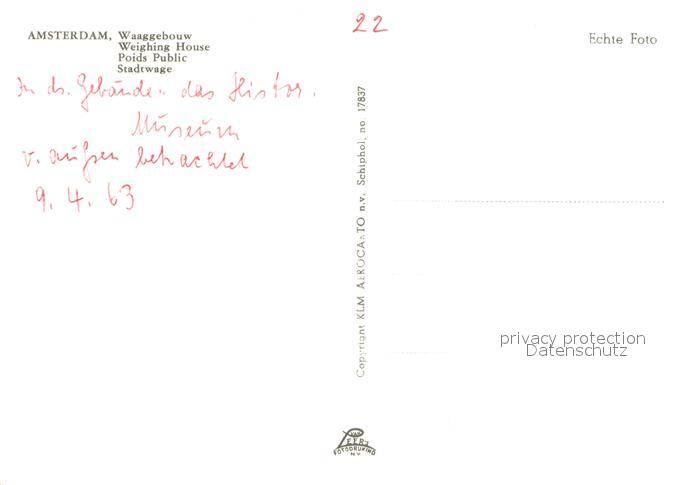 22
AMSTERDAM, Waaggebouw
Weighing House
Poids Public
Stadtwage
Echte Foto
In ds. Gebäude. das Histor.
Museum
v. außen betrachtet
9. 4. 63
Copyright KLM AEROCARTO n.v. Schiphol, no 17837
privacy protection
Datenschutz
VAN
LEER'S
FOTODRUKIND
N.V.